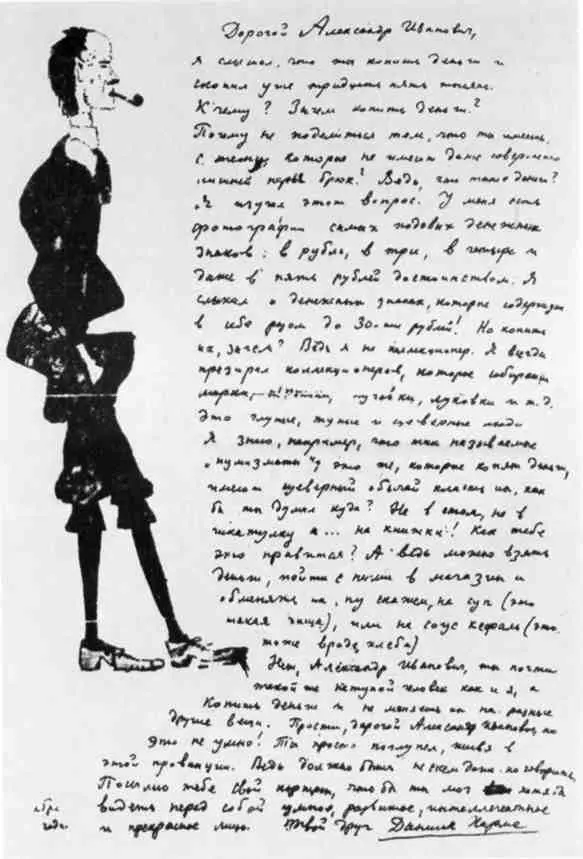 Дорогой Александр Иванович,
я слышал, что ты копишь деньги и
скопил уже тридцать пять тысяч.
К чему? Зачем копить деньги?
Почему не поделиться тем, что ты имеешь,
с теми, которые не имеют даже совершенно
лишней пары брюк? Ведь, что такое деньги?
Я изучил этот вопрос. У меня есть
фотографии самых ходовых денежных
знаков: в рубль, в три, в четыре и
даже в пять рублей достоинством. Я
слыхал о денежных знаках, которые содержат
в себе разом до 30-ти рублей! Но копить
их, зачем? Ведь я не коллекционер. Я всегда
презирал коллекционеров, которые собирают
марки, пёрышки, пуговки, луковки и т.д.
Это глупые, тупые и суеверные люди
Я знаю, например, что так называемые
"нумизматы", это те, которые копят деньги,
имеют суеверный обычай класть их, как
бы ты думал куда? Не в стол, не в
шкатулку а... на книжки! Как тебе
это нравится? А ведь можно взять
деньги, пойти с ними в магазин и
обменять их, ну скажем, на суп (это
такая пища), или на соус кефали (это
тоже вроде хлеба)
Нет, Александр Иванович, ты почти
такой же нетупой человек как и я, а
копишь деньги и не меняешь их на разные
другие вещи. Прости, дорогой Александр Иванович, но
это не умно! Ты просто поглупел, живя в
этой провинции. Ведь должно быть не с кем даже поговорить.
Посылаю тебе свой портрет, что бы ты мог хотя бы
видеть перед собой умное, развитое, интеллигентное
и прекрасное лицо. Твой друг Даниил Хармс